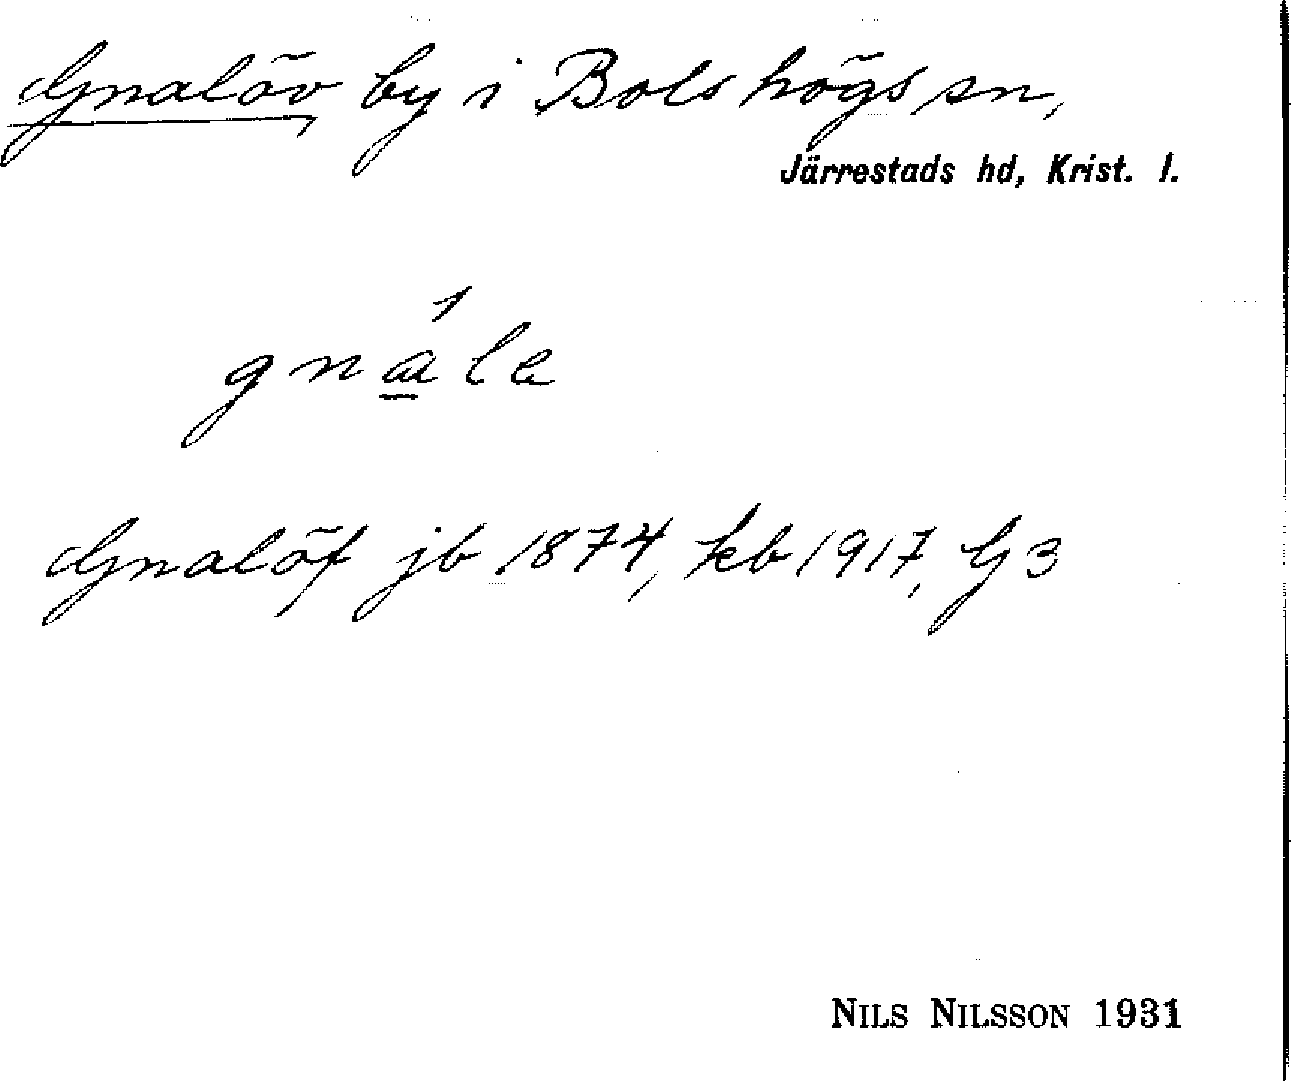 Gnalöv by i Bolshögs sn,
Järrestads hd, Krist. l.
gnále
Gnalöf jb 1874, kb 1917, G 3
NILS NILSSON 1931